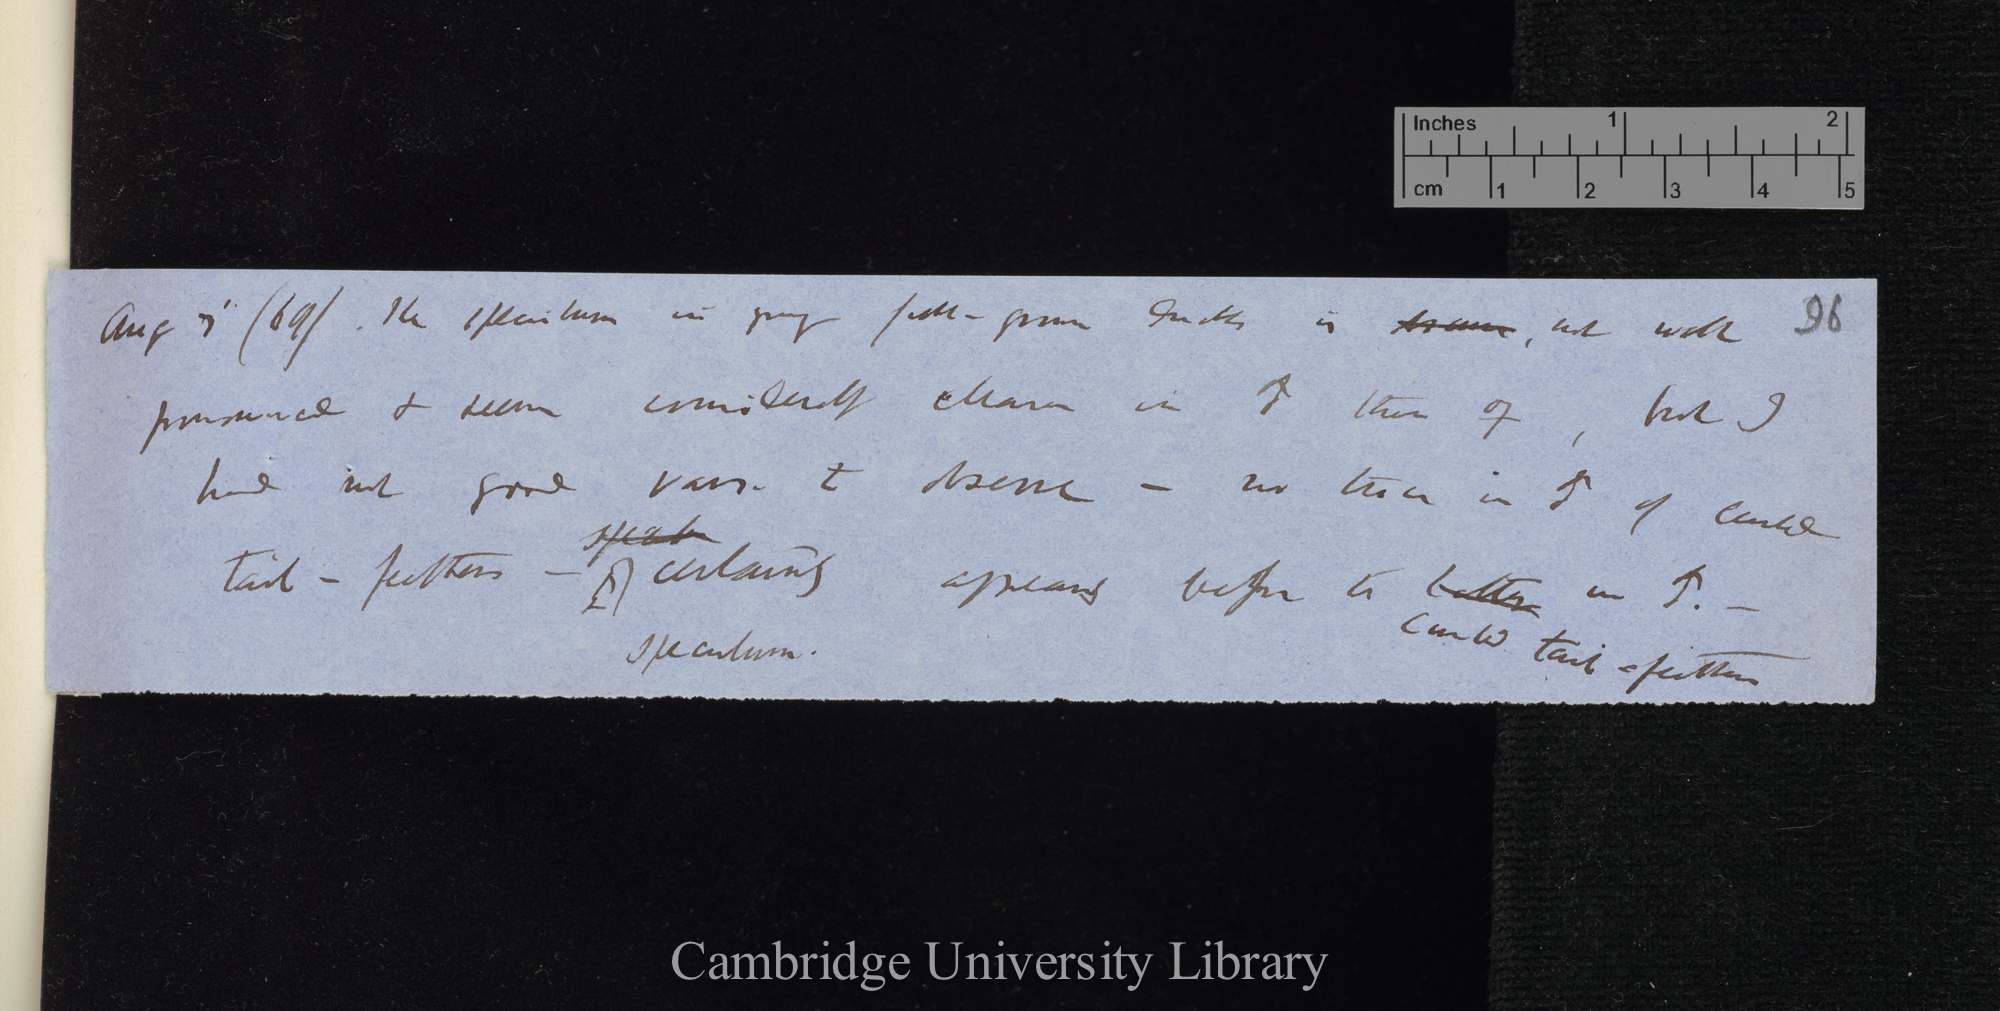 Inches 1 2
cm 1 2 3 4 5
96
Aug 7' (69). The speculum in young full-grown Ducks is, not well
pronounced & seem considerably clearer in ♂ than ♀, but I
had not good vars. to observe — no trace in ♂ of curled
tail-feathers — certainly appears before the in ♂. —
speculum. curled tail-feathers
Cambridge University Library